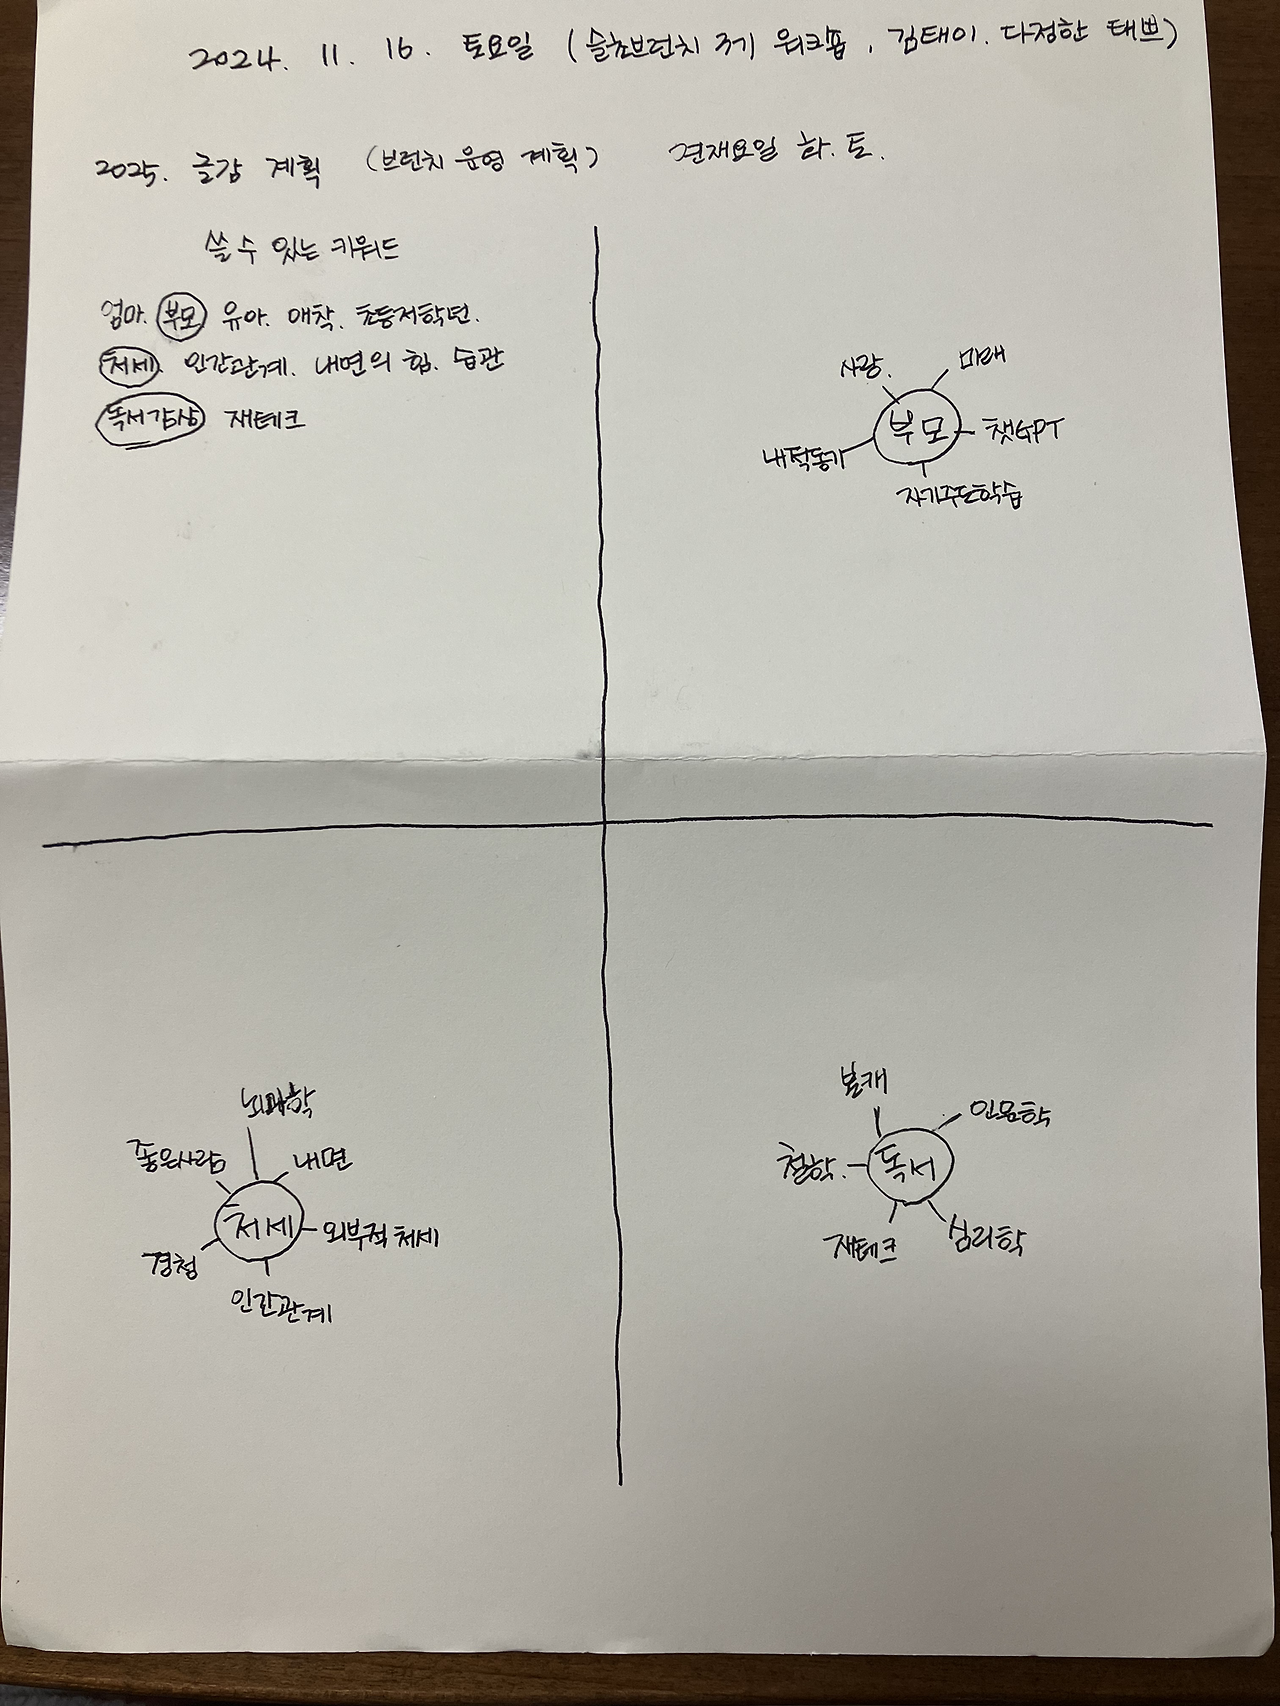 2024. 11. 16. 토요일 (슬초브런치 3기 워크숍, 김태이. 다정한 태쁘)
2025. 글감 계획 (브런치 운영 계획) 연재요일 화. 토.
쓸 수 있는 키워드
엄마. 부모 유아. 애착. 초등저학년.
처세. 인간관계. 내면의 힘. 습관
독서감상 재테크
사랑.
미래
부모
챗GPT
내적동기
자기주도학습
뇌과학
좋은사람
내면
처세
외부적 처세
경청
인간관계
본캐
인문학
철학.
독서
재테크
심리학